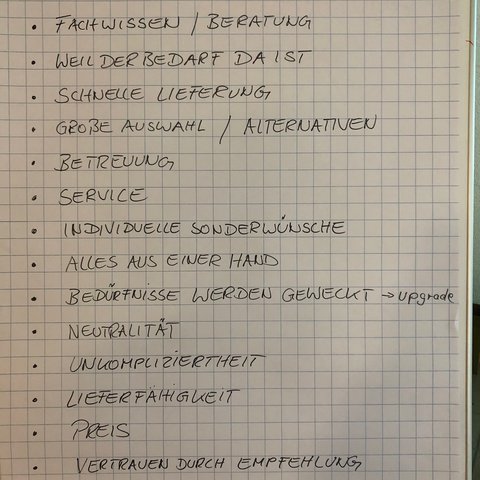 • FACHWISSEN / BERATUNG
• WEIL DER BEDARF DA IST
• SCHNELLE LIEFERUNG
• GROßE AUSWAHL / ALTERNATIVEN
• BETREUUNG
• SERVICE
• INDIVIDUELLE SONDERWÜNSCHE
• ALLES AUS EINER HAND
• BEDÜRFNISSE WERDEN GEWECKT → upgrade
• NEUTRALITÄT
• UNKOMPLIZIERTHEIT
• LIEFERFÄHIGKEIT
• PREIS
• VERTRAUEN DURCH EMPFEHLUNG